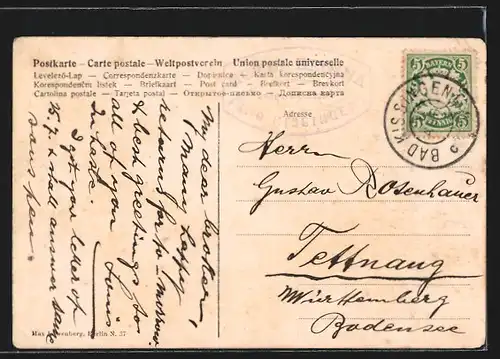 Postkarte – Carte postale – Weltpostverein – Union postale universelle
Levelező-Lap — Correspondenzkarte — Dopisnice — Karta korespondencyjna
Korespondenční lístek — Briefkaart — Post card — Brefkort — Brevkort
Cartolina postale — Tarjeta postal — Открытое письмо — Дописна карта
Adresse
BAYERN
5 5
PFENNIG
BAD KISSINGEN
Herrn
Gustav Rosenhauer
Tettnang
Württemberg
Bodensee
My dear brother,
Many happy
returns for to-morrow
& best greetings to
all of you
In haste
Louis
I got your letter of
15./7. & shall answer
Max Berlin N. 37